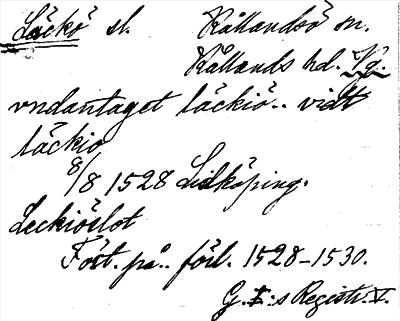 Läckö sl. Kållandsö sn.
Kållands hd. Vg.
vndantaget läckiö.. vidt
läckio
8/8 1528 Lidköping.
Leckiöslot
Fört. på.. förl. 1528-1530.
G. I:s Registr. V.